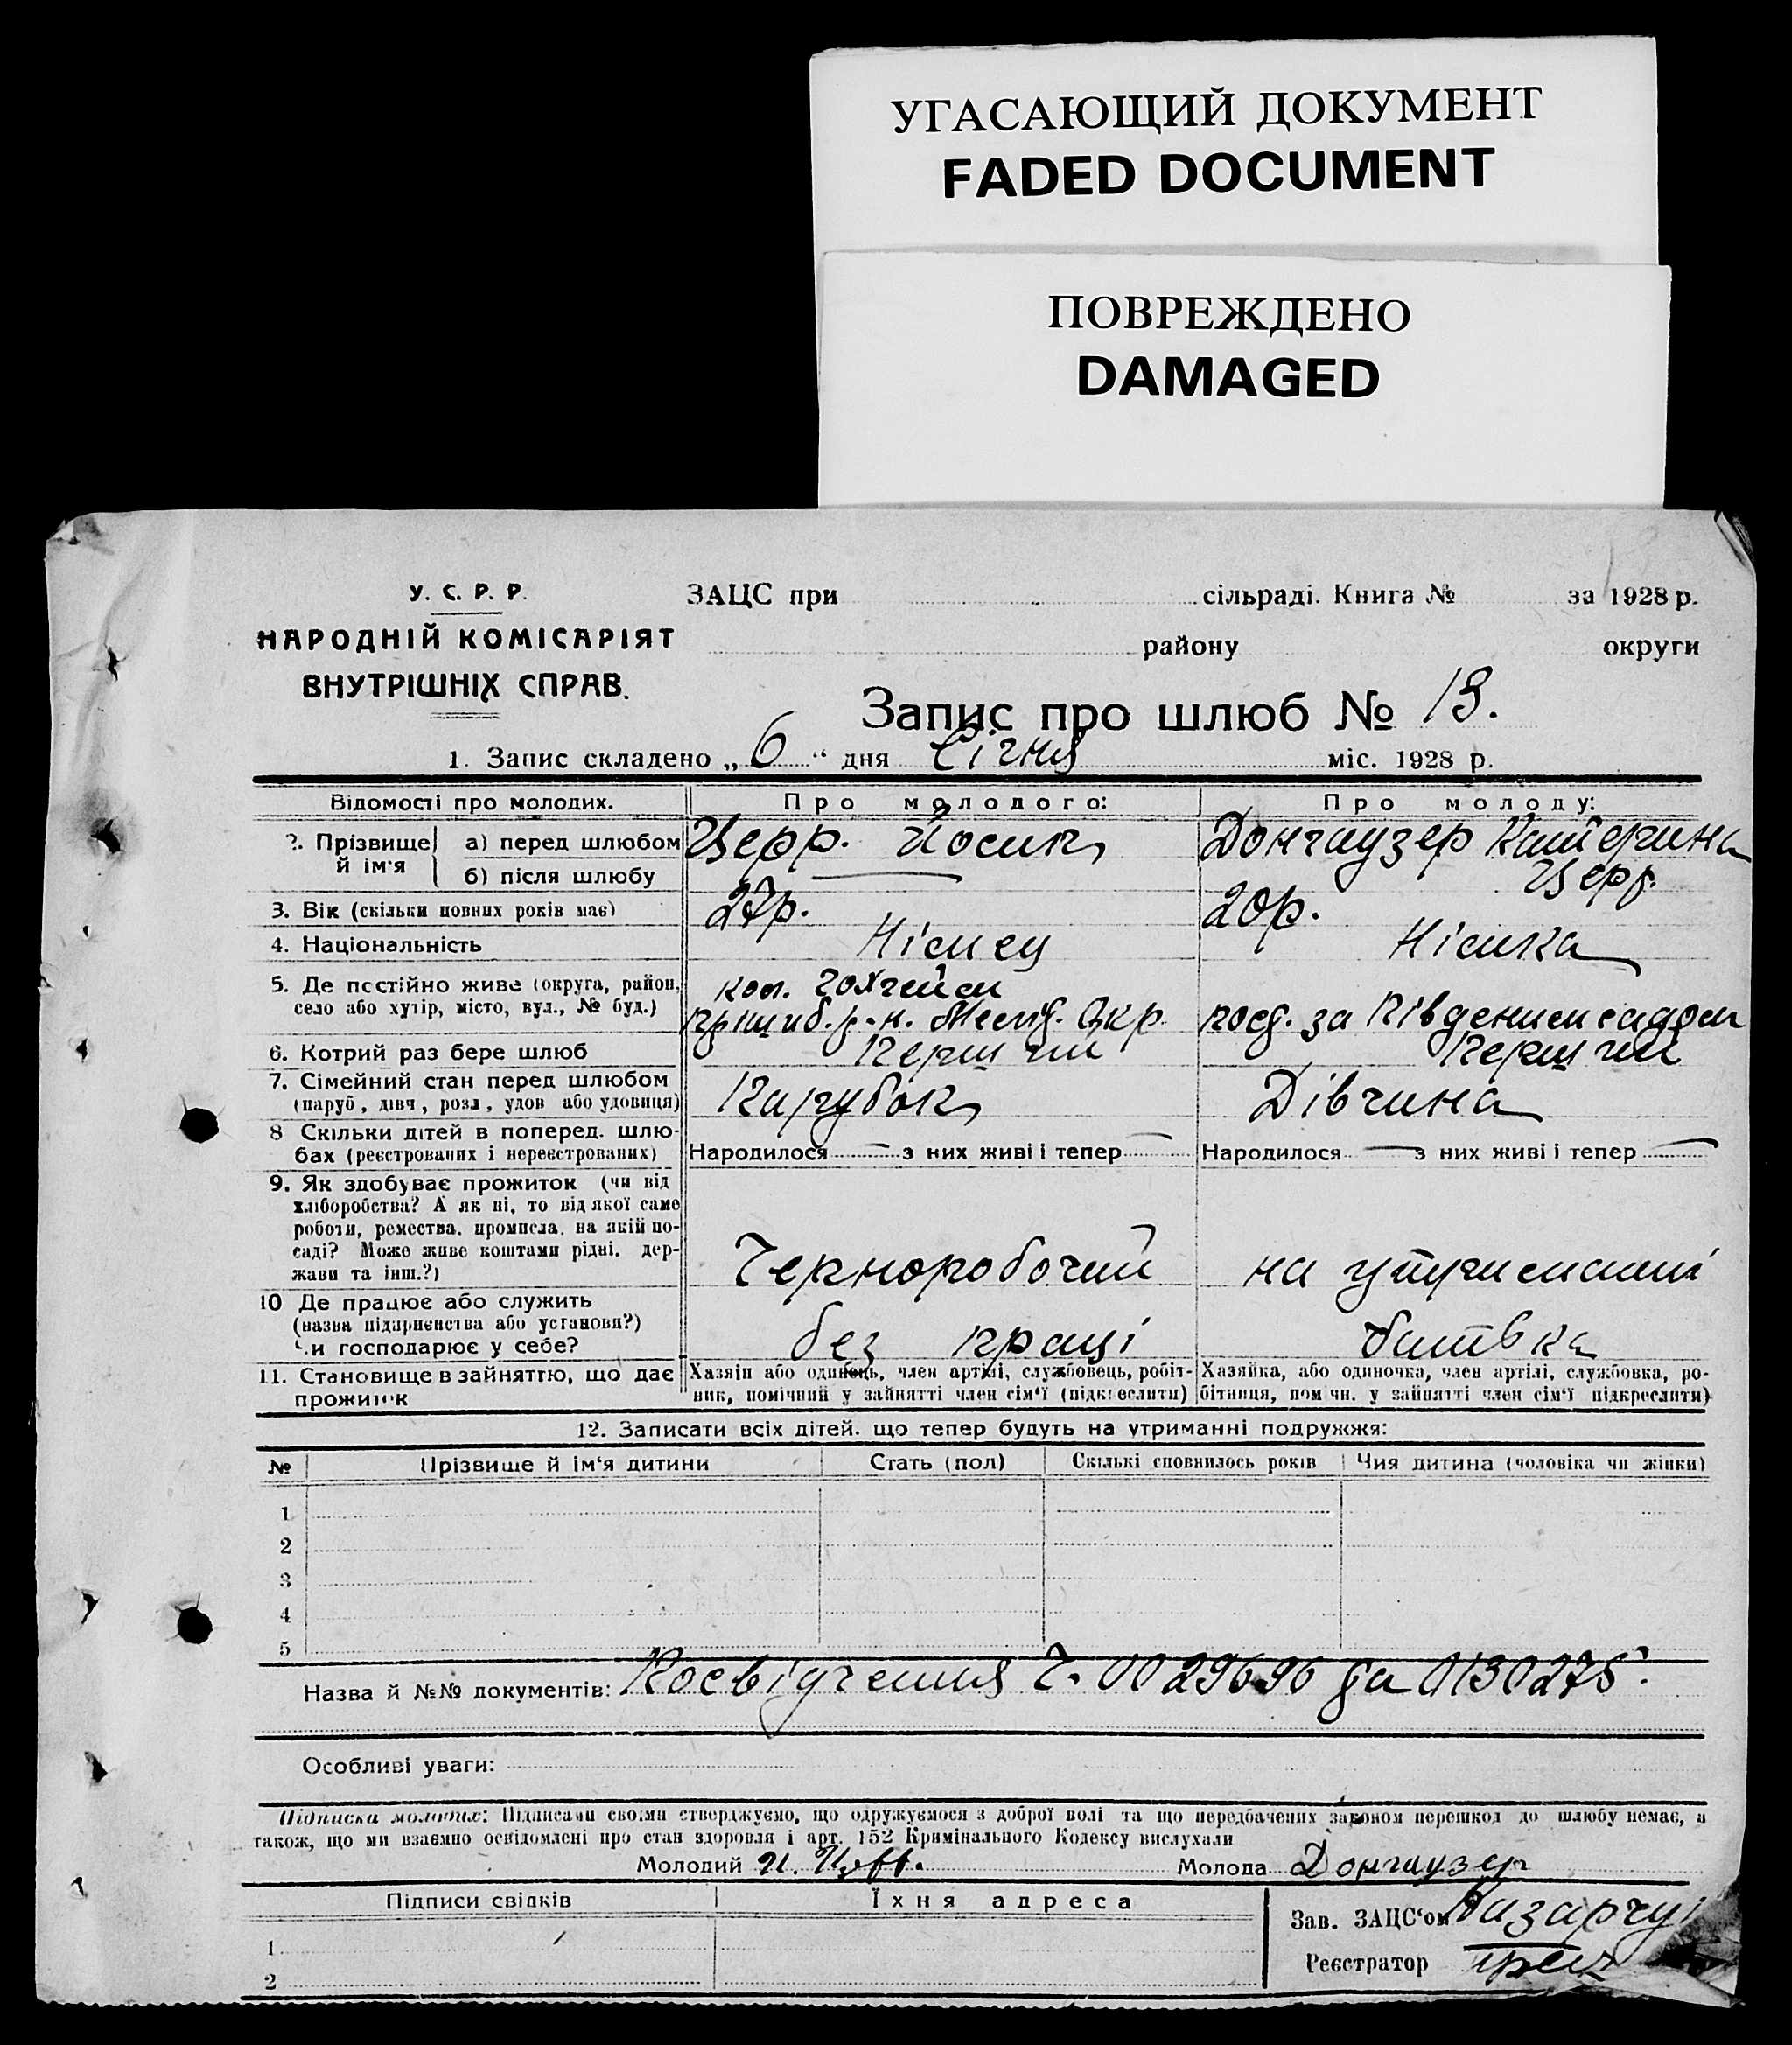 УГАСАЮЩИЙ ДОКУМЕНТ
FADED DOCUMENT
ПОВРЕЖДЕНО
DAMAGED
У. С. Р. Р.
НАРОДНІЙ КОМІСАРІЯТ
ВНУТРІШНІХ СПРАВ.
ЗАЦС при сільраді. Книга № за 1928 р.
району округи
Запис про шлюб № 13.
1. Запис складено „6“ дня Січня міс. 1928 р.
Відомості про молодих. Про молодого: Про молоду:
2. Прізвище й ім'я а) перед шлюбом Церр. Йосип Донгаузер Катерина
б) після шлюбу Церр.
3. Вік (скільки повних років має) 27р. 20р.
4. Національність Німец Німка
5. Де постійно живе (округа, район, село або хутір, місто, вул., № буд.) кол. Гохгейм
Пришиб. р-н. Меліт. Окр. посд. за Південним садом
6. Котрий раз бере шлюб Перший Перший
7. Сімейний стан перед шлюбом (паруб., дівч., розл., удов або удовиця) Парубок Дівчина
8 Скільки дітей в поперед. шлюбах (реєстрованих і нереєстрованих) Народилося — з них живі і тепер — Народилося — з них живі і тепер —
9. Як здобуває прожиток (чи від
хліборобства? А як ні, то від якої саме
роботи, ремества, промисла, на якій по-
саді? Може живе коштами рідні, дер-
жави та інш.?) Черноробочий на утриманні
10 Де працює або служить
(назва підприємства або установи?)
Чи господарює у себе? без праці батька
11. Становище в зайняттю, що дає
прожиток
Хазяїн або одинець, член артілі, службовець, робіт-
ник, помічний у зайнятті член сім'ї (підкреслити)
Хазяйка, або одиночка, член артілі, службовка, ро-
бітниця, помічн. у зайнятті член сім'ї підкреслити)
12. Записати всіх дітей, що тепер будуть на утриманні подружжя:
№ Прізвище й ім'я дитини Стать (пол) Скількі сповнилось років Чия дитина (чоловіка чи жінки)
1
2
3
4
5
Назва й №№ документів: Посвідчення Ч. 0029696 да 0130275.
Особливі уваги:
Підписка молодих: Підписами своїми стверджуємо, що одружуємося з доброї волі та що передбачених законом перешкод до шлюбу немає, а
також, що ми взаємно освідомлені про стан здоровля і арт. 152 Кримінального Кодексу вислухали
Молодий Молода Донгаузер
Підписи свідків Їхня адреса
Зав. ЗАЦС'ом
1
Реєстратор
2